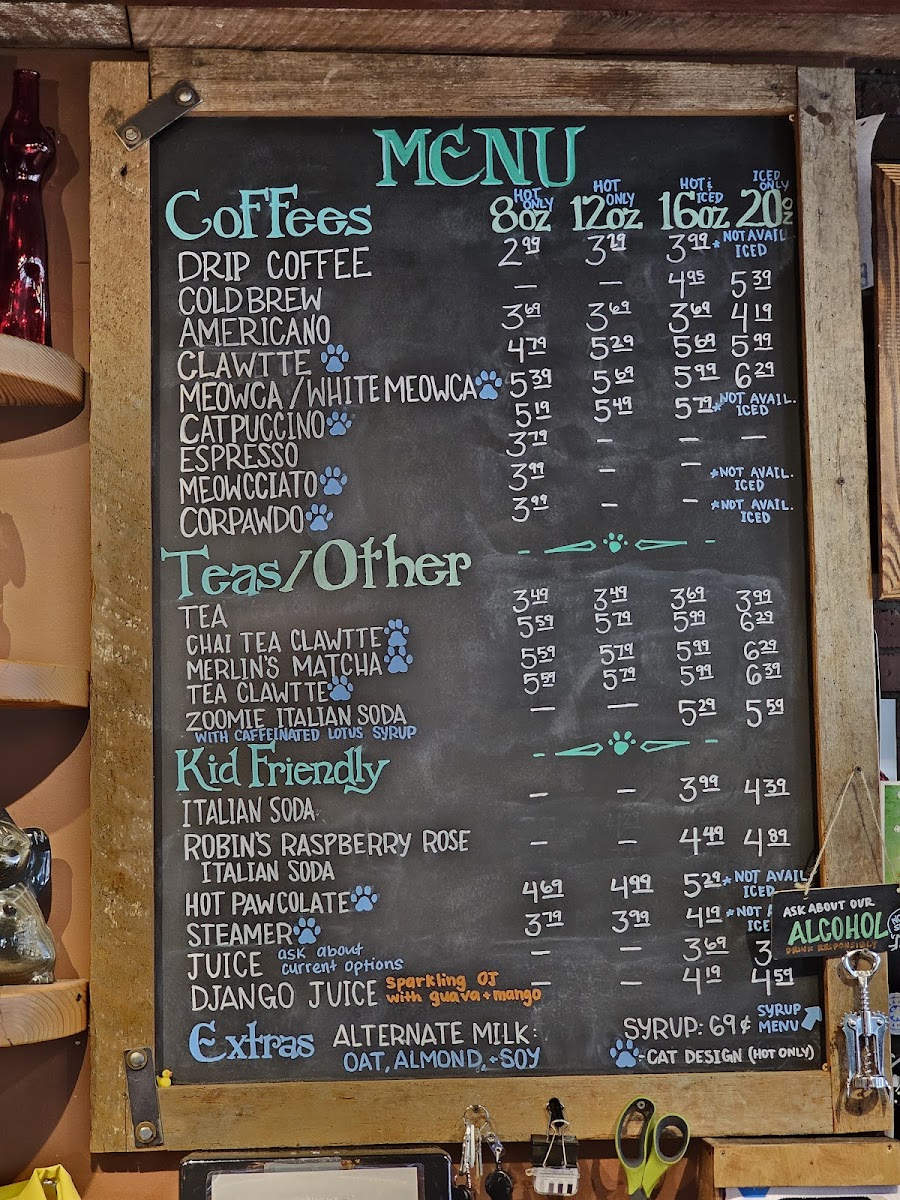 MENU
Coffees HOT ONLY 8oz HOT ONLY 12oz HOT & ICED 16oz ICED ONLY 20oz
DRIP COFFEE 2.99 3.29 3.99 *NOT AVAIL. ICED
COLD BREW — — 4.95 5.39
AMERICANO 3.69 3.69 3.69 4.19
CLAWTTE 4.79 5.29 5.69 5.99
MEOWCA/WHITE MEOWCA 5.39 5.69 5.99 6.29
CATPUCCINO 5.19 5.49 5.79 *NOT AVAIL. ICED
ESPRESSO 3.79 — — —
MEOWCCIATO 3.99 — — *NOT AVAIL. ICED
CORPAWDO 3.99 — — *NOT AVAIL. ICED
Teas/Other
TEA 3.49 3.49 3.69 3.99
CHAI TEA CLAWTTE 5.59 5.79 5.99 6.29
MERLIN'S MATCHA 5.59 5.79 5.99 6.29
TEA CLAWTTE 5.59 5.79 5.99 6.39
ZOOMIE ITALIAN SODA — — 5.29 5.59
WITH CAFFEINATED LOTUS SYRUP
Kid Friendly
ITALIAN SODA — — 3.99 4.39
ROBIN'S RASPBERRY ROSE — — 4.49 4.89
ITALIAN SODA
HOT PAWCOLATE 4.69 4.99 5.29 *NOT AVAIL ICED
STEAMER 3.79 3.99 4.19 *NOT
JUICE ask about current options — — 3.69 3
DJANGO JUICE sparkling OJ with guava + mango — — 4.19 4.59
Extras ALTERNATE MILK: SYRUP: 69¢ SYRUP MENU
OAT, ALMOND, + SOY - CAT DESIGN (HOT ONLY)
ASK ABOUT OUR
ALCOHOL
DRINK RESPONSIBLY